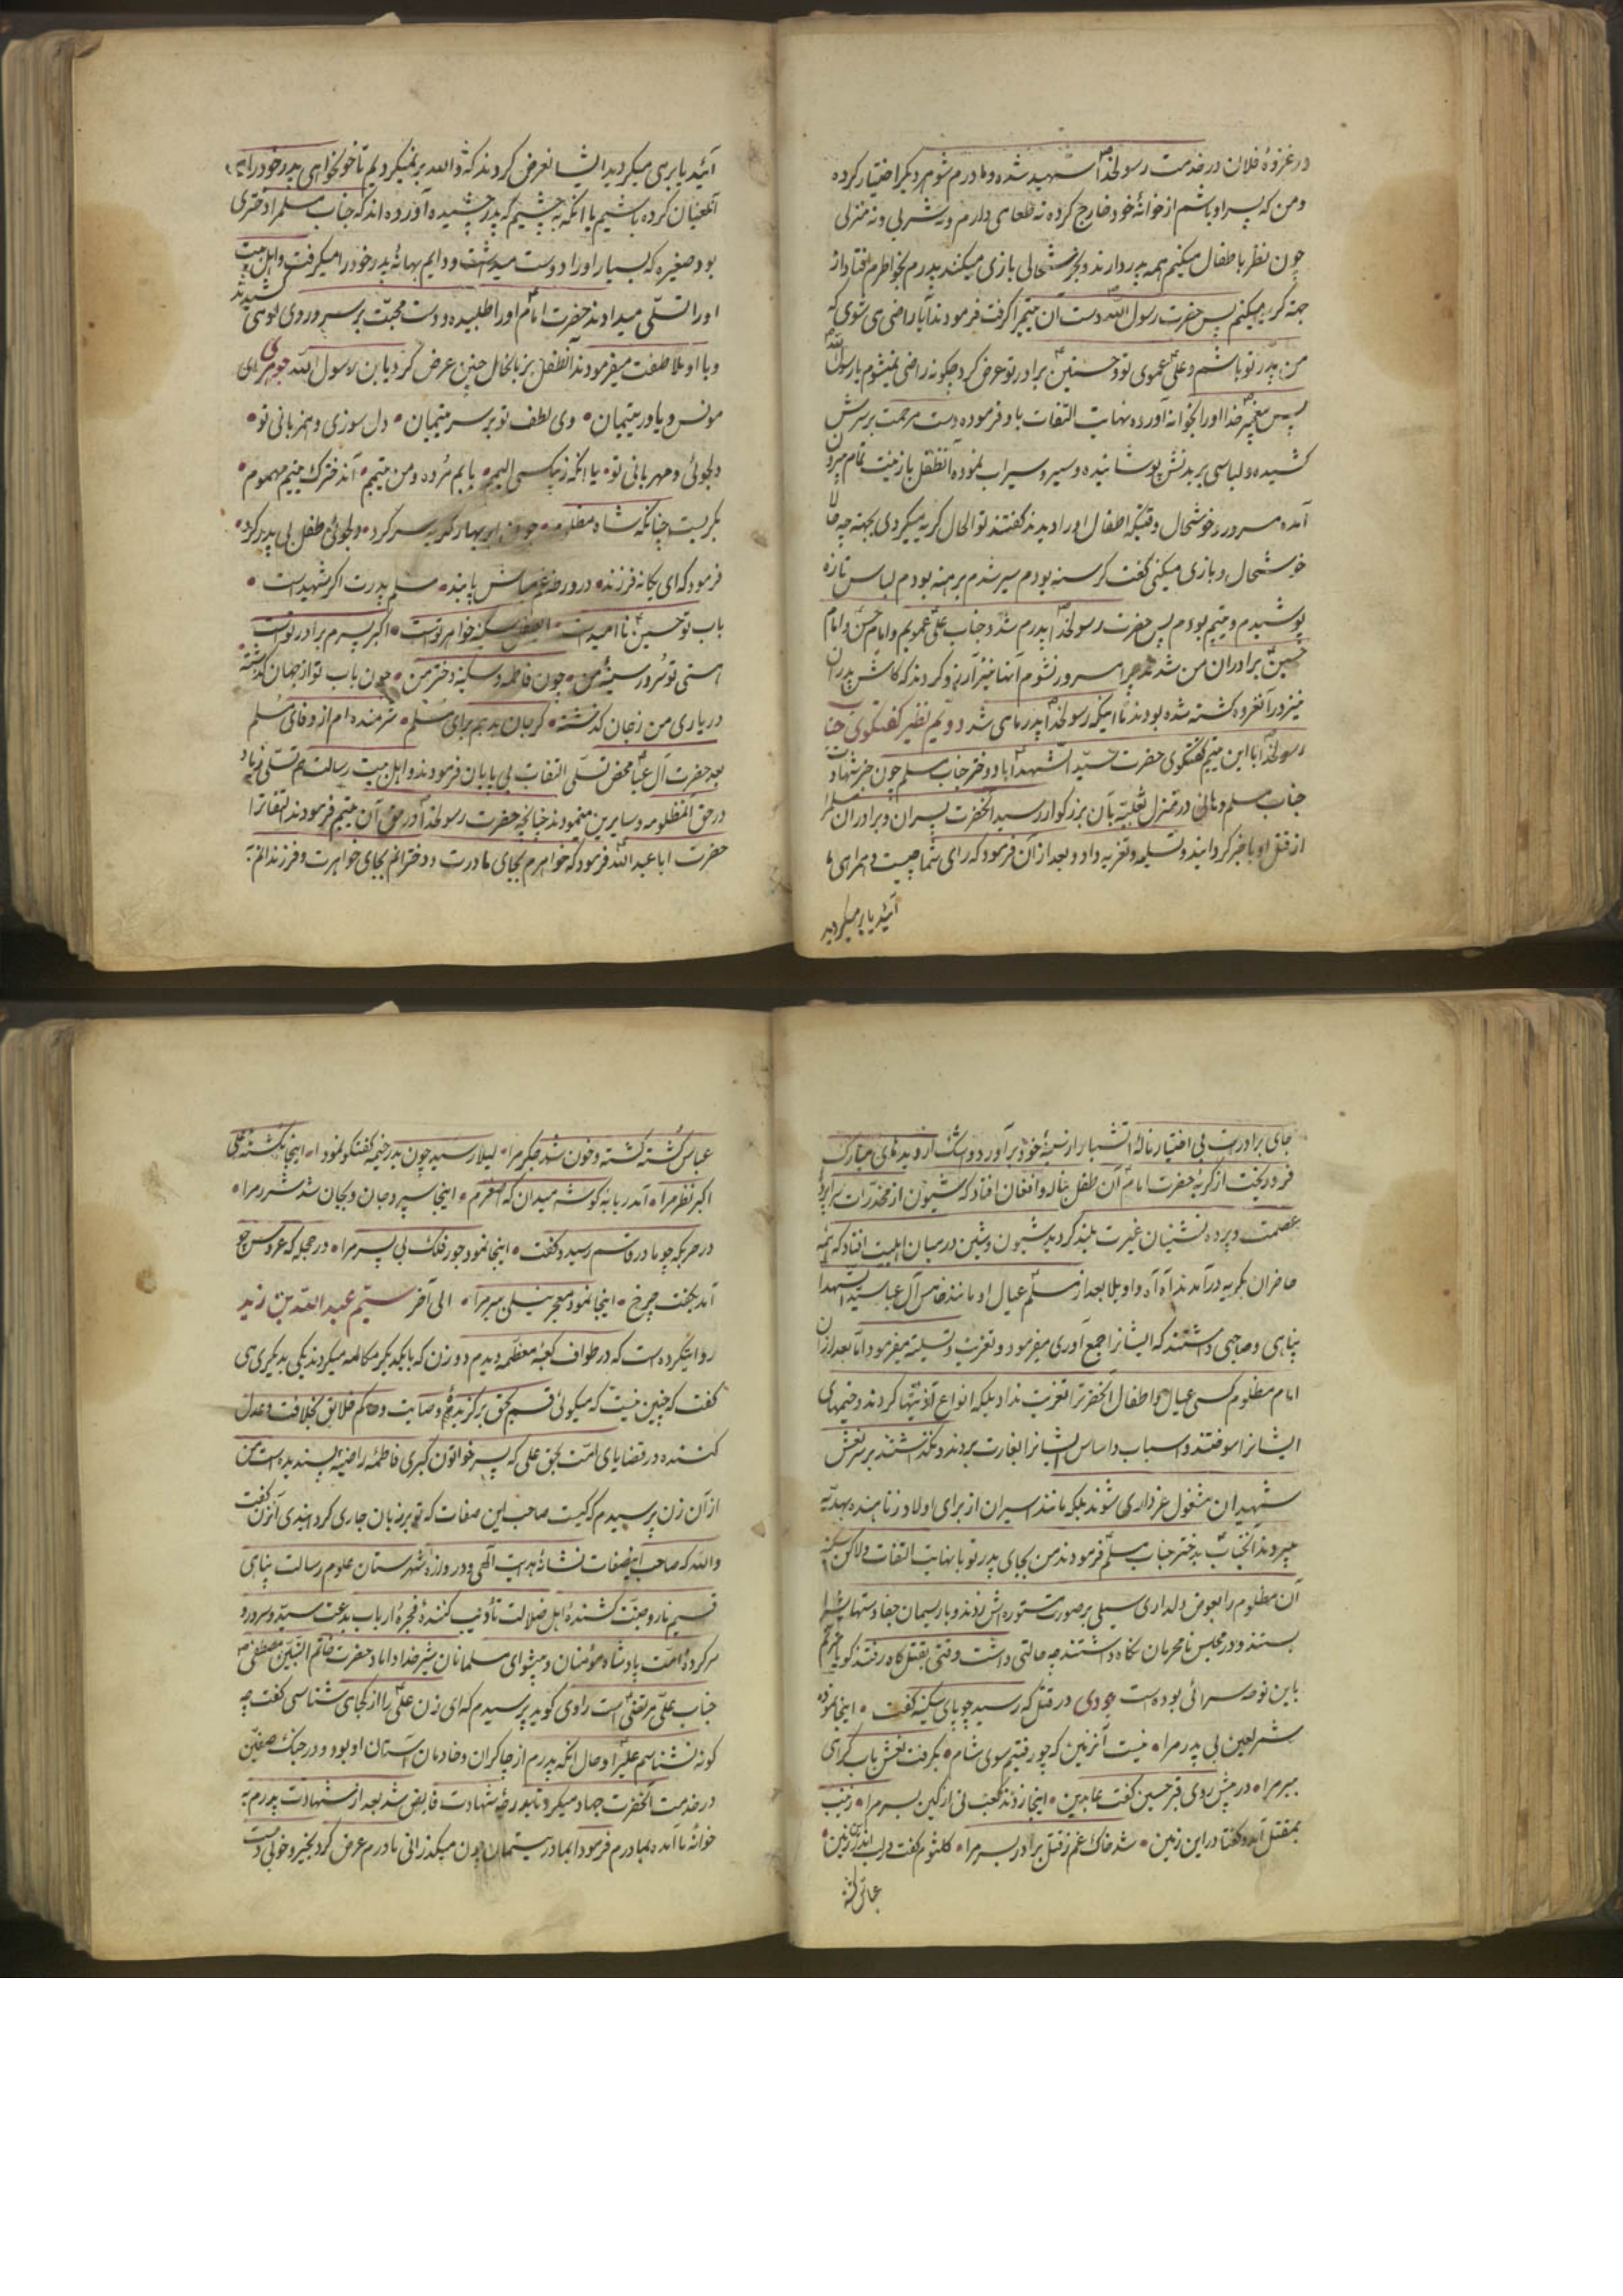 در غزوهٔ فلان در خدمت رسولخدا شهید شده و مادرم شوهر دیگر اختیار کرده
و من که پسر او باشم از خوانهٔ خود خارج کرده نه طعامی دارم و نه شربی و نه منزلی
چون نظر باطفال میکنم همه پدر دارند و بخوشحالی بازی میکنند پدرم بخواطرم افتاد از
جهته گریه میکنم پس حضرت رسول الله دست آن یتیم را گرفت فرمودند آیا راضی می شوی که
من پدر تو باشم و علی عموی تو و حسنین برادر تو عرض کرد چگونه راضی نمیشوم یا رسول الله
پس پیغمبر خدا او را بخوانه آورده نهایت التفات باو فرموده دست مرحمت بر سرش
کشیده و لباسی بر بدنش پوشانیده و سیر و سیراب نموده آنطفل با زینت تمام بیرون
آمده مسرور و خوشحال وقتیکه اطفال او را دیدند گفتند تو الحال گریه میکردی بجهته چه حالا
خوشحال و بازی میکنی گفت گرسنه بودم سیر شدم برهنه بودم لباس تازه
پوشیدم و یتیم بودم پس حضرت رسولخدا پدرم شد و جناب علی عمویم و امام حسن و امام
حسین برادران من شدند چرا مسرور نشوم آنها نیز آرزو کردند که کاش پدران
نیز در آنغزوه کشته شده بودند تا اینکه رسولخدا پدر مای شد دویم نظیر گفتگوی جناب
رسولخدا با این یتیم گفتگوی حضرت سید الشهدا با دختر جناب مسلم چون خبر شهادت
جناب مسلم و هانی در منزل ثعلبیه بآن بزرگوار رسید آنحضرت پسران و برادران مسلم را
از قتل او با خبر گردانید و تسلیه و تعزیه داد و بعد از آن فرمود که رای شما چیست همراهی ما
آئید یا بر میگردید
آئید یا بر می میگردید ایشان عرض کردند که والله بر نمیگردیم تا خونخواهی پدر خود را
آنلعینان کرده باشیم یا آنکه بچشیم که پدر چشیده آورده اند که جناب مسلم را دختری
بود صغیره که بسیار او را دوست میداشت و دایم بهانهٔ پدر خود را میگرفت و اهل بیت
او را تسلّی میدادند حضرت امام او را طلبیده و دست محبّت بر سر و روی او می کشیدند
و با او ملاطفت میفرمودند آنطفل بزبانحال چنین عرض کرد یا بن رسول الله جوهری ای
مونس و یاور یتیمان • وی لطف تو بر سر یتیمان • دل سوزی و همزبانی تو •
دلجوئی و مهربانی تو • یا آنکه ز بیکسی الیم • بابم مرده و من یتیم • آندخترک یتیم مهموم •
بگریست چنانکه شاه مظلوم • چون ابر بهار گریه سر کرد • دلجوئی طفل بی پدر کرد •
فرمود که ای یگانه فرزند • در ورطهٔ غم مباش پابند • مسلم پدرت اگر شهید است •
باب تو حسین ناامید است • سکینه خواهر توست • اکبر پسرم برادر توست
هستی تو سرور سینهٔ من • چون فاطمه و سکینه دختر من • چون باب تو از جهان گذشته
در یاری من ز جان گذشته • گریان برای مسلم • شرمنده ام از وفای مسلم
بعد حضرت آل عبا محض تسلّی التفات بی پایان فرمودند و اهل بیت رسالت هم تسلی زیاد
در حق آنمظلومه و سایرین مینمودند چنانچه حضرت رسولخدا در حق آن یتیم فرمودند التفاتها
حضرت ابا عبد الله فرمود که خواهرم بجای مادرت و دخترانم بجای خواهرت و فرزندانم
جای برادرت بی اختیار نالهٔ آتشبار از سینهٔ خود برآورد و اشک از دیدهای مبارک
فرو ریخت از گریهٔ حضرت امام آن طفل بناله و افغان افتاد که شیون از مخدرات سراپردهٔ
عصمت و پرده نشینان غیرت بلند گردید شیون و شین در میان اهلبیت افتاد که همه
حاضران بگریه در آمدند آه آه واویلا بعد از مسلم عیال او مانند خامس آل عبا سید الشهدا
پناهی و صاحبی داشتند که ایشانرا جمع آوری میفرمود و تعزیت و تسلیه میفرمود اما بعد از آن
امام مظلوم کسی عیال و اطفال آنحضرت را تعزیت نداد بلکه انواع آذیتها کردند و خیمهای
ایشانرا سوختند و اسباب و اساس ایشانرا بغارت بردند و نگذاشتند بر سر نعش
شهیدان مشغول عزداری شوند بلکه مانند اسیران از برای اولاد زنا هدیه بهدیه
میبردند آنجناب بدختر جناب مسلم فرمودند من بجای پدر تو با نهایت التفات ولاکن سکینه
آن مظلوم را بعوض دلداری سیلی بر صورت مستوره اش زدند و با ریسمان جفا دستهایش را
بستند و در مجلس نامحرمان نگاه داشتند چه حالتی داشت وقتی بقتلگاه رفتند گویا مترنّم
باین نوحه سرائی بوده است جودی در قتلگه رسید چو پای سکینه گفت • اینجا نموده
شمر لعین بی پدر مرا • نیست آنزمین که چو رفتیم سوی شام • بگرفت نعش باب گرامی
ببر مرا • در پیش روی قبر حسین گفت عابدین • اینجا زدند کعب نی از کین بسر مرا • زینب
بمقتل آمد و گفتا در این زمین • شد خاک غم ز قتل برادر بسر مرا • کلثوم گفت در لب این زمین •
عباس کشته
عباس کُشته گشته و خون شد جگر مرا • لیلا رسید چون بدر خیمه گفتگو نمود • اینجا نشسته علی
اکبر نظر مرا • آمد ربابه گوشه میدان که اصغرم • اینجا سپرد جان و بجان شد شرر مرا •
در حربگه چو مادر قاسم رسید و گفت • اینجا نمود جور فلک بی پسر مرا • در حجله که عروس چو
آمد بگفت چرخ • اینجا نمود معجر نیلی بسر مرا • الی آخر سیّم عبدالله بن زید
روایتکرده است که در طواف کعبهٔ معظّمه دیدم دو زن که با یکدیگر مکالمه میکردند یکی بدیگری می
گفت که چنین نیست که میگوئی قسم بحق برگزیدهٔ وصایت و حاکم خلایق بخلافت و عدل
کننده در قضایای امّت بحق علی که پسر خواتون کبری فاطمه راضیه پسندیده است من
از آن زن پرسیدم که کیست صاحب این صفات که تو بر زبان جاری گردانیدی آنزن گفت
والله که صاحب اینصفات نشانهٔ هدیت الهی و در وازهٔ شهرستان علوم رسالت پناهی
قسیم نار و جنّت کُشندهٔ اهل ضلالت تأدیب کنندهٔ فجره ارباب بدعت سیّد و سرور و
سرکردهٔ امّت پادشاه مؤمنان و پیشوای مسلمانان شیر خدا داماد حضرت خاتم النّبیّین مصطفی
جناب علی مرتضی است راوی گوید پرسیدم که ای زن علی را از کجای شناسی گفت چه
گونه نشناسم علی را و حال آنکه پدرم از چاکران و خادمان آستان او بود و در جنگ صفّین
در خدمت آنحضرت جهاد میکرد تا بدرجهٔ شهادت فایض شد بعد از شهادت پدرم به
خوانهٔ ما آمده بمادرم فرمود ای مادر یتیمان چون میگذرانی مادرم عرض کرد بخیر و خوبی